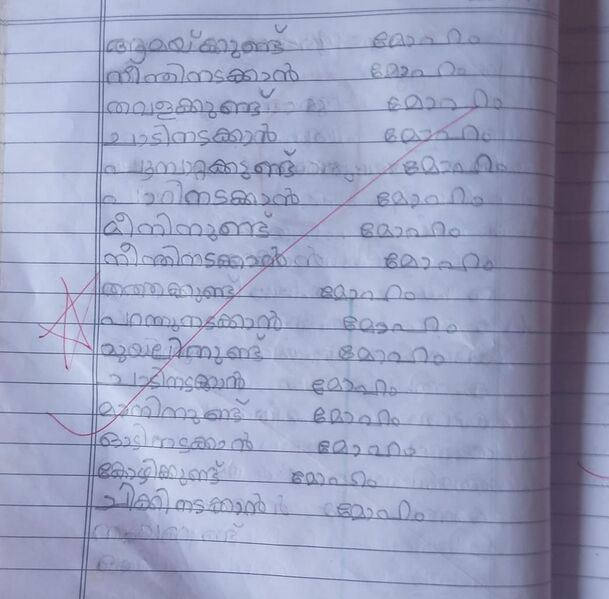 ആമയ്ക്കുണ്ട് മോഹം
നീന്തിനടക്കാൻ മോഹം
തവളക്കുണ്ട് മോഹം
ചാടിനടക്കാൻ മോഹം
പൂമ്പാറ്റക്കുണ്ട് മോഹം
പാറിനടക്കാൻ മോഹം
മീനിനുണ്ട് മോഹം
നീന്തിനടക്കാൻ മോഹം
തത്തക്കുണ്ട് മോഹം
പറന്നുനടക്കാൻ മോഹം
മുയലിനുണ്ട് മോഹം
ചാടിനടക്കാൻ മോഹം
മാനിനുണ്ട് മോഹം
ഓടിനടക്കാൻ മോഹം
കോഴിക്കുണ്ട് മോഹം
ചിക്കിനടക്കാൻ മോഹം